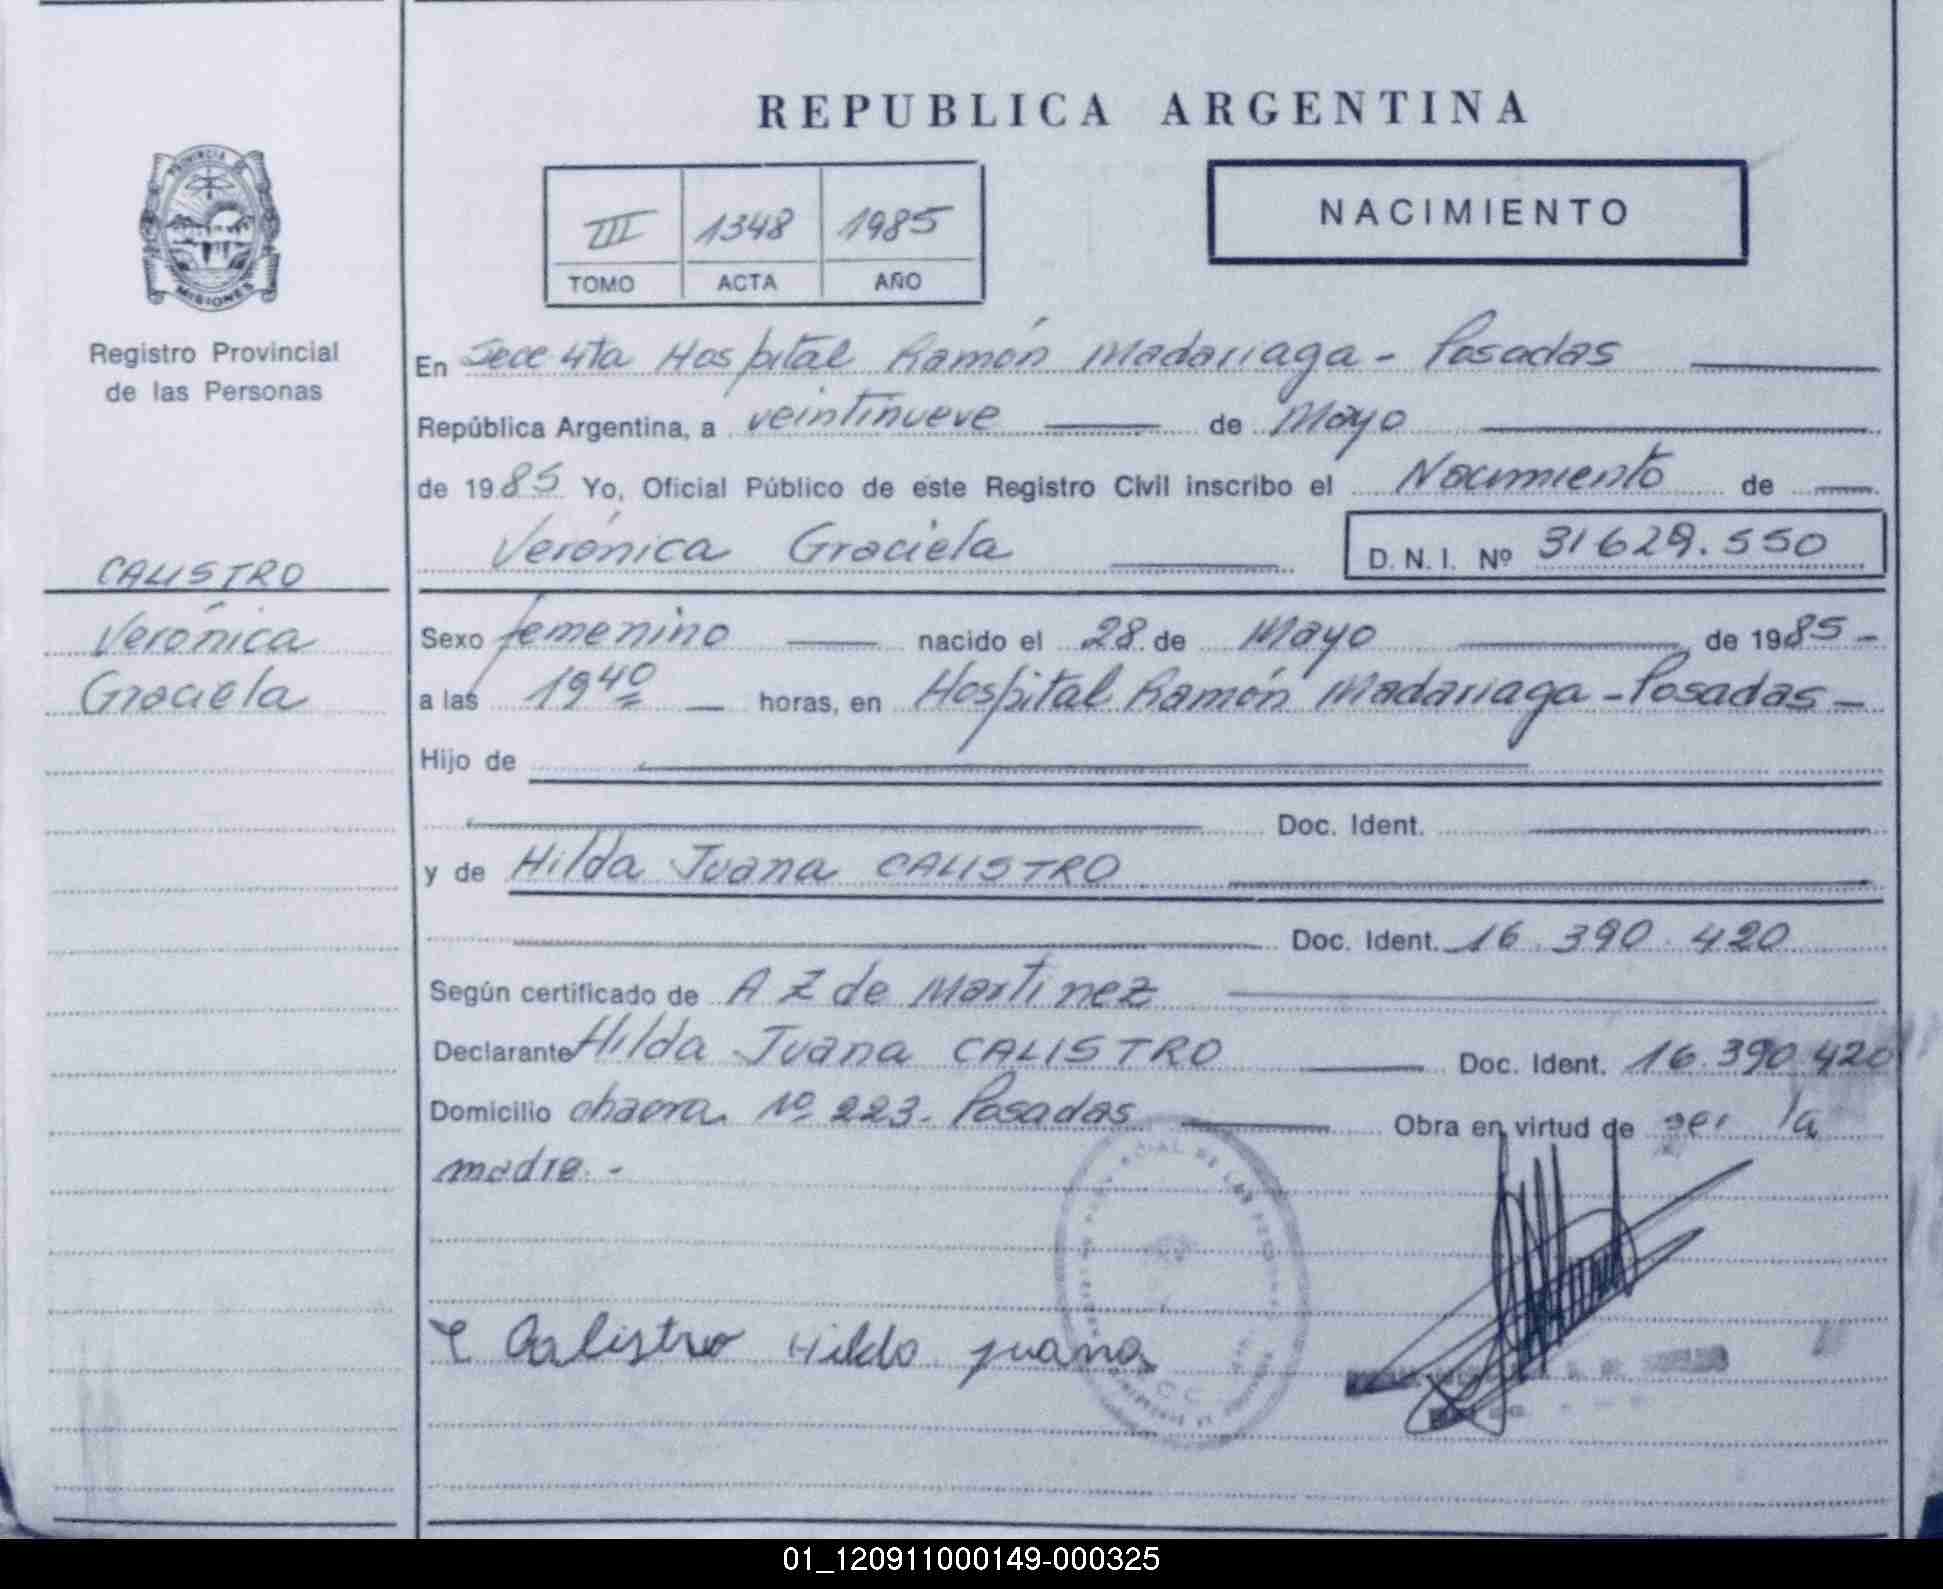 REPUBLICA ARGENTINA
PROVINCIA DE
MISIONES
Registro Provincial
de las Personas
III 1348 1985
TOMO ACTA AÑO
NACIMIENTO
En Secc 4ta Hospital Ramón Madariaga - Posadas
República Argentina, a veintinueve de Mayo
de 1985 Yo, Oficial Público de este Registro Civil inscribo el Nacimiento de
Verónica Graciela D. N. I. Nº 31629.550
CALISTRO
Verónica
Graciela
Sexo femenino nacido el 28 de Mayo de 1985 -
a las 19 40 horas, en Hospital Ramón Madariaga - Posadas -
Hijo de
Doc. Ident.
y de Hilda Juana CALISTRO
Doc. Ident. 16.390.420
Según certificado de A Z de Martinez
Declarante Hilda Juana CALISTRO Doc. Ident. 16.390.420
Domicilio chacra Nº 223- Posadas Obra en virtud de ser la
madre.-
Calistro Hilda juana
01_120911000149-000325